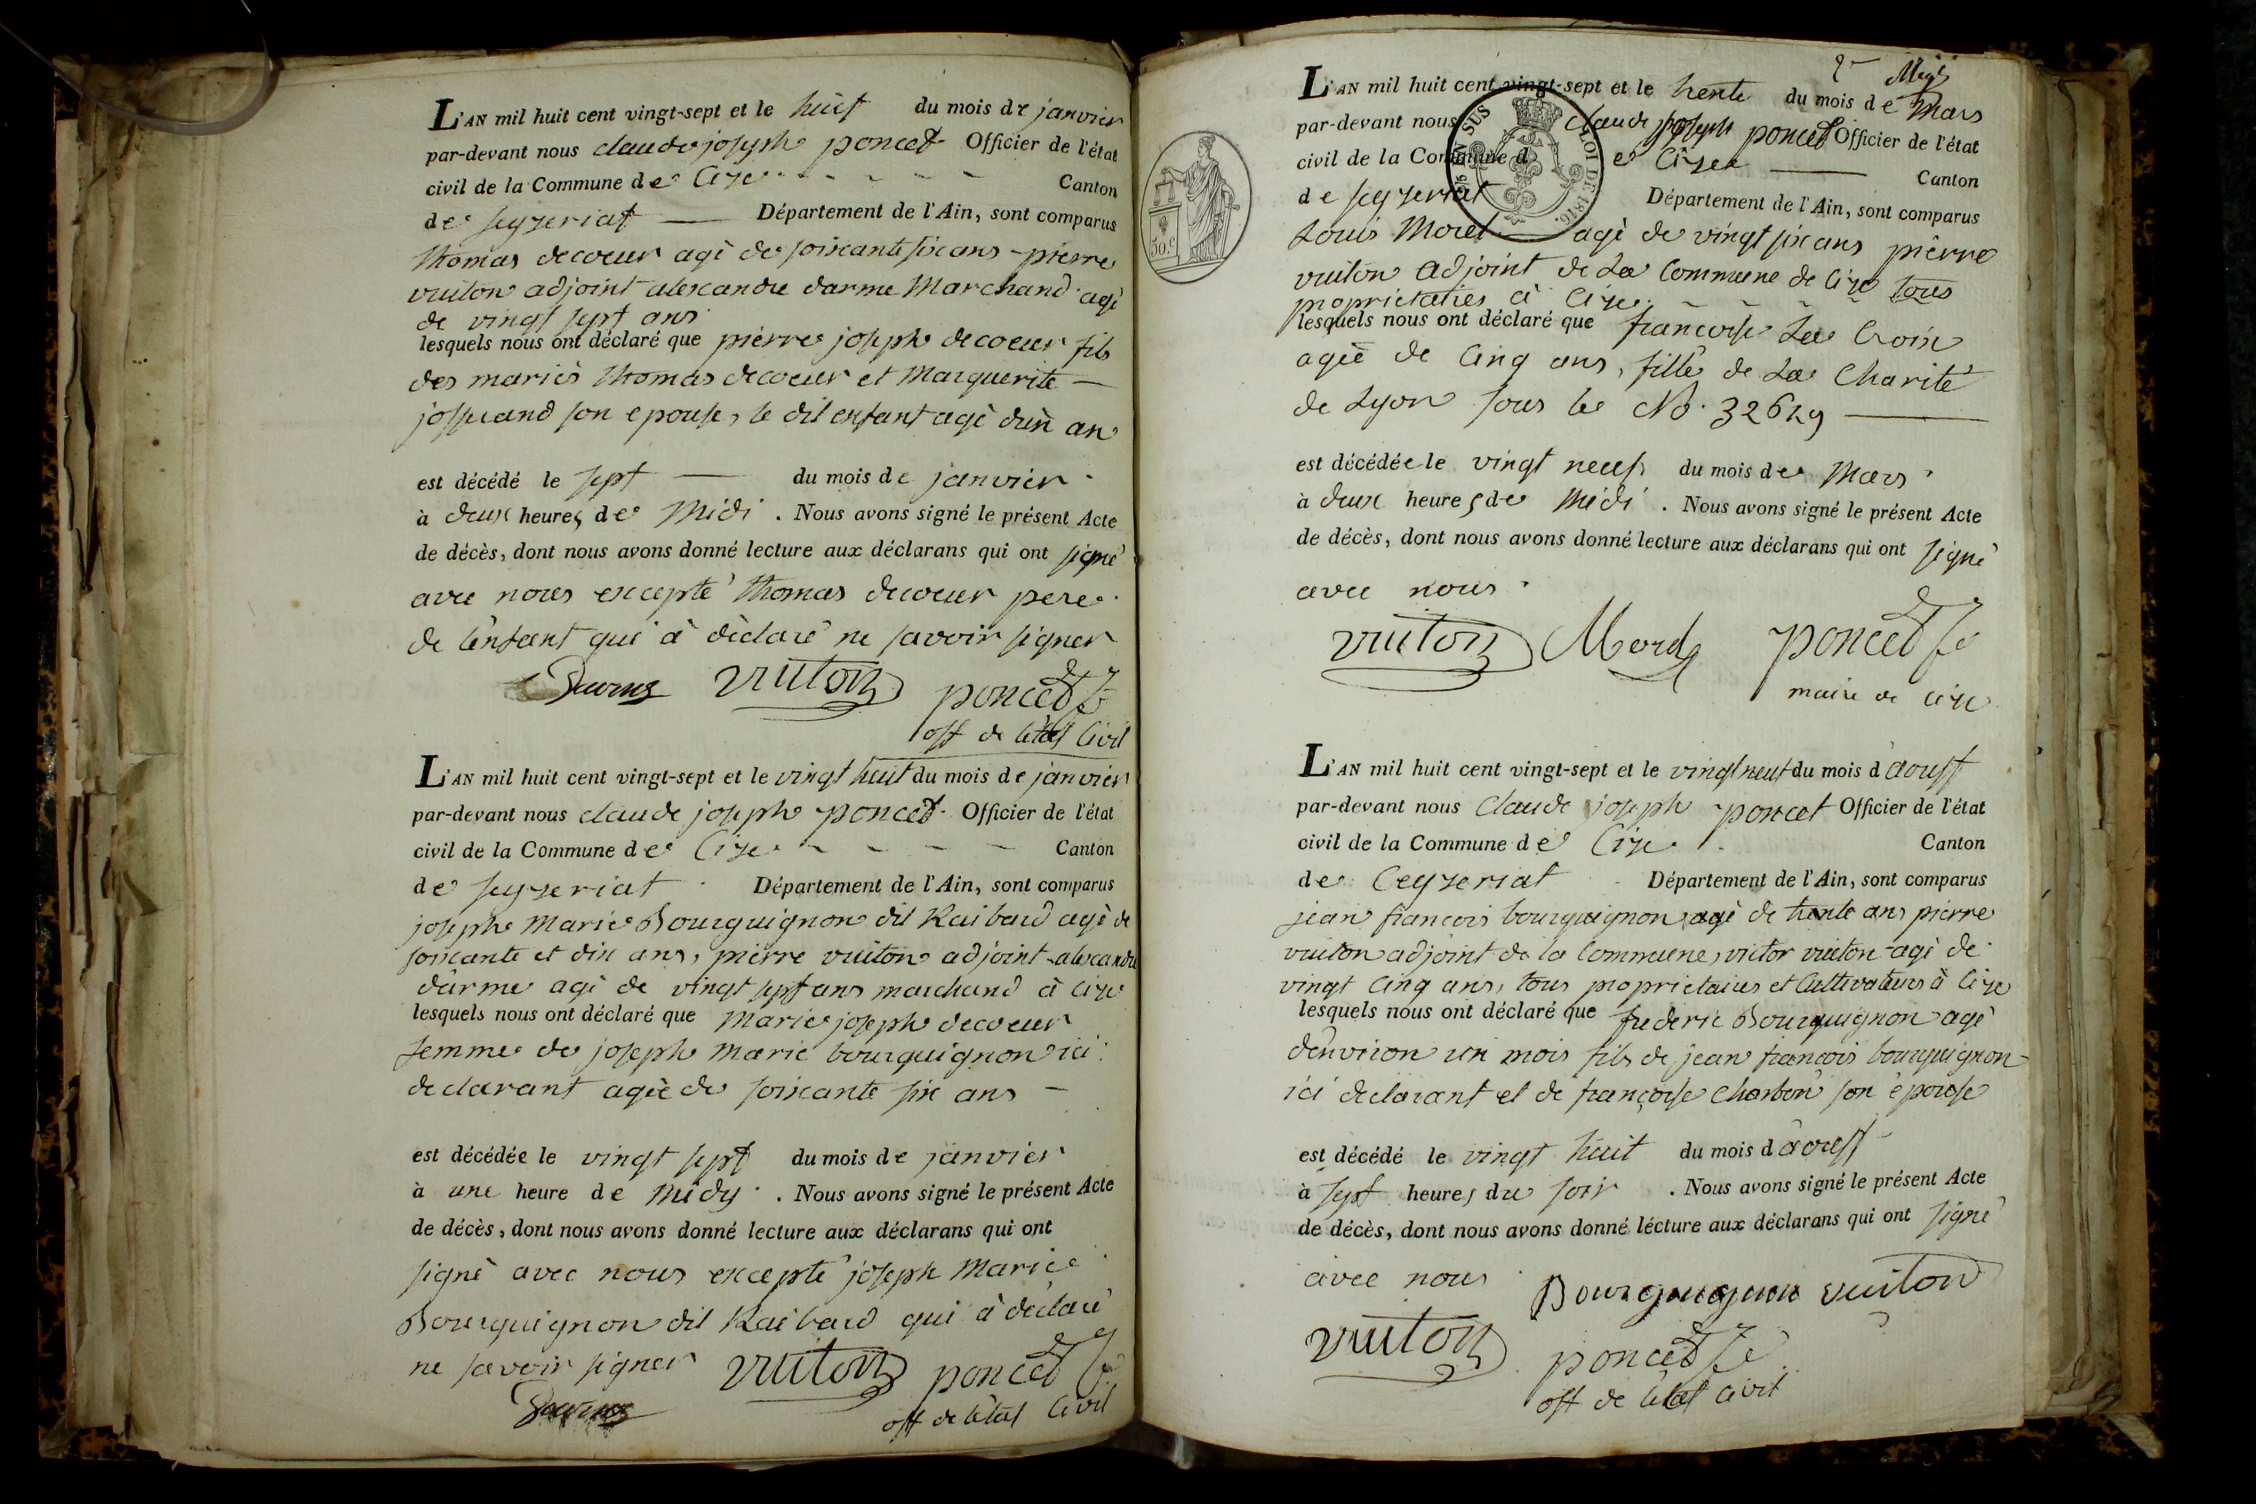 L'AN mil huit cent vingt-sept et le huit du mois de janvier
par-devant nous claude joseph poncet Officier de l'état
civil de la Commune de Cize Canton
de seyzeriat Département de l'Ain, sont comparus
thomas decoeur agè de soixante six ans pierre
vuiton adjoint alexandre darme Marchand agè
de vingt sept ans
lesquels nous ont déclaré que pierre joseph decoeur fils
des mariès thomas decoeur et Marguerite
josserand son epouse, le dit enfant agè dun an
est décédé le sept du mois de janvier
à deux heures de Midi. Nous avons signé le présent Acte
de décès, dont nous avons donné lecture aux déclarans qui ont signé
avec nous excepté thomas decoeur pere
de lenfant qui à dèclaré ne savoir signer
Darme vuiton poncet
off de letat Civil
L'AN mil huit cent vingt-sept et le vingt huit du mois de janvier
par-devant nous claude joseph poncet Officier de l'état
civil de la Commune de Cize Canton
de seyzeriat Département de l'Ain, sont comparus
joseph Marie Bourguignon dit Raibaud agè de
soixante et dix ans, pierre vuiton adjoint alexandre
darme agè de vingt sept ans marchand à Cize
lesquels nous ont déclaré que Marie joseph decoeur
femme de joseph Marie bourguignon ici
declarant agèe de soixante six ans
est décédée le vingt sept du mois de janvier
à une heure de midy. Nous avons signé le présent Acte
de décès, dont nous avons donné lecture aux déclarans qui ont
signè avec nous excepté joseph Marie
Bourguignon dit Raibaud qui à déclaré
ne savoir signer vuiton poncet
Darme off de létat Civil
2e
L'AN mil huit cent vingt-sept et le trente du mois de Mars
par-devant nous claude joseph poncet Officier de l'état
civil de la Commune de Cize Canton
de seyzeriat Département de l'Ain, sont comparus
Louis Morel agè de vingt six ans pierre
vuiton adjoint de La Commune de Cize tous
proprietaires à Cize
lesquels nous ont déclaré que francoise La Croix
agèe de Cinq ans, fille de La Charité
de Lyon sous le No. 32629
est décédée le vingt neuf du mois de Mars
à deux heures de Midi. Nous avons signé le présent Acte
de décès, dont nous avons donné lecture aux déclarans qui ont signè
avec nous
vuiton Morel poncet
maire de cize
30.c
EN SUS LOI DE 1816.
L'AN mil huit cent vingt-sept et le vingt neuf du mois d'aoust
par-devant nous Claude joseph poncet Officier de l'état
civil de la Commune de Cize Canton
de Ceyzeriat Département de l'Ain, sont comparus
jean francois bourguignon agè de trente ans pierre
vuiton adjoint de la Commune, victor vuiton agè de
vingt Cinq ans, tous proprietaires et Cultivateurs à Cize
lesquels nous ont déclaré que frederic Bourguignon agè
denviron un mois fils de jean francois bourguignon
ici declarant et de françoise Charbon son èpouse
est décédé le vingt huit du mois d'aoust
à sept heures du soir. Nous avons signé le présent Acte
de décès, dont nous avons donné lécture aux déclarans qui ont signé
avec nous Bourguignon vuiton
vuiton poncet
off de létat Civil